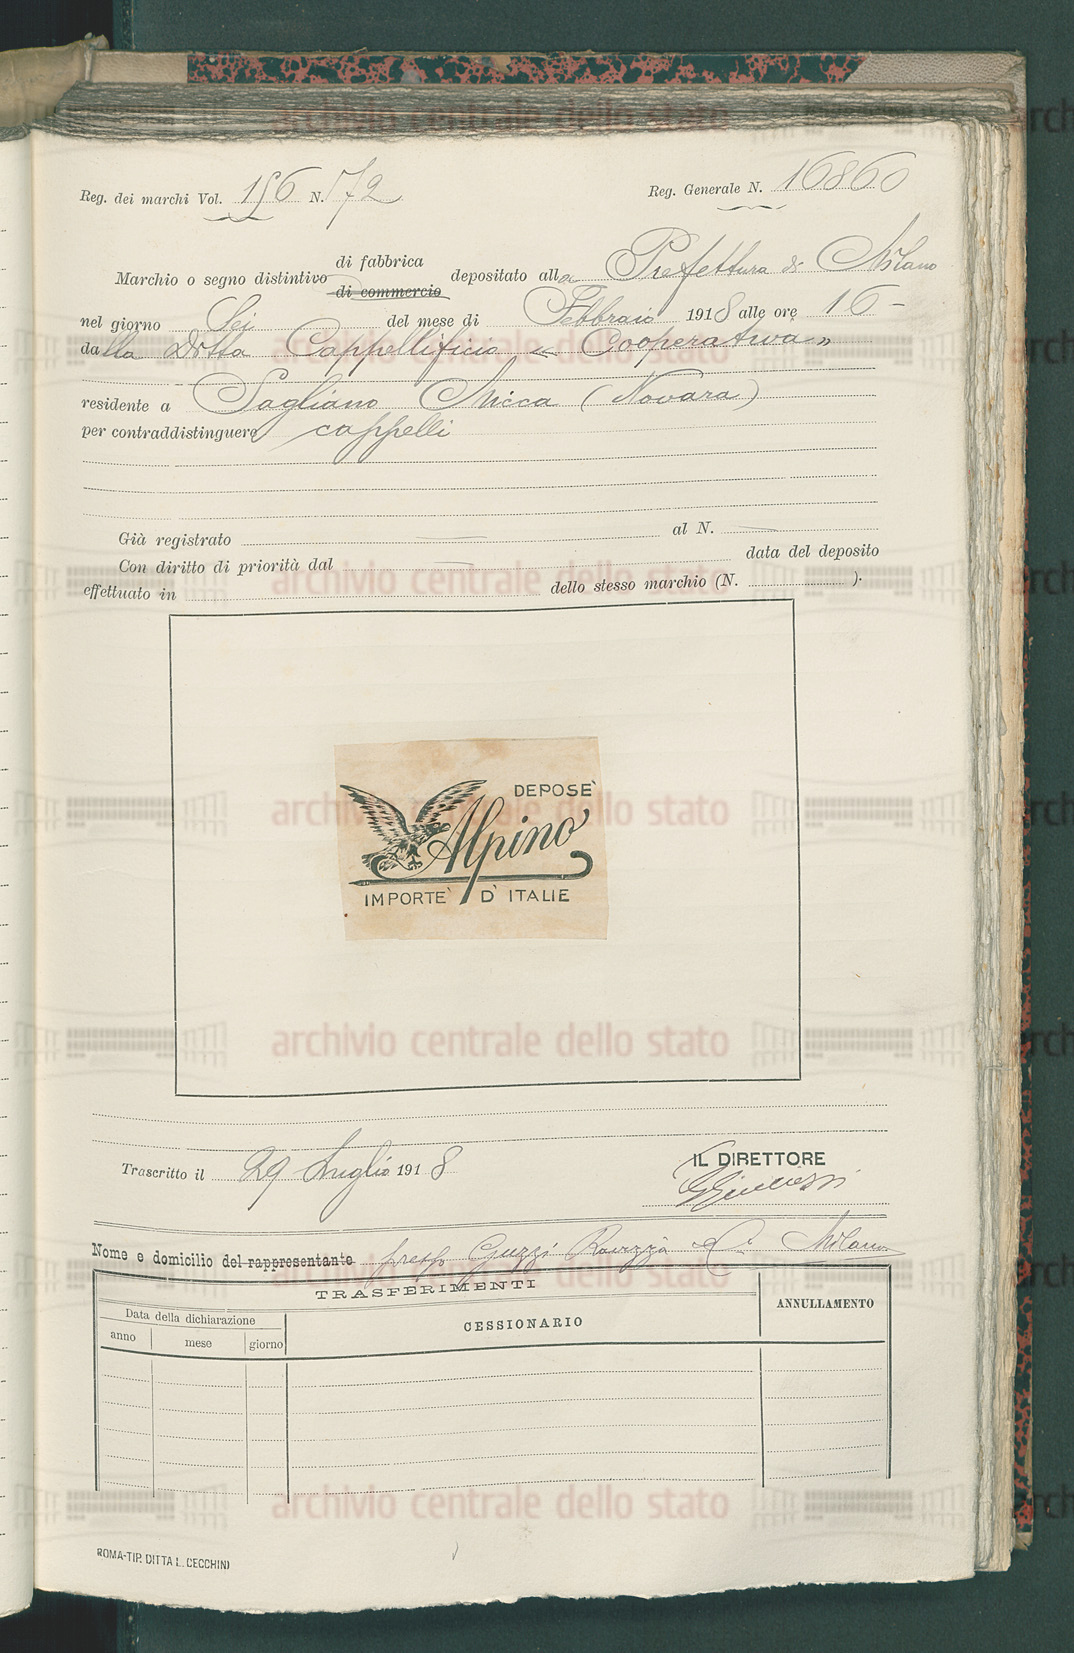 archivio centrale dello stato
Reg. dei marchi Vol. 156 N. 72
Reg. Generale N. 16860
Marchio o segno distintivo di fabbrica di commercio depositato alla Prefettura di Milano
nel giorno Sei del mese di Febbraio 1918 alle ore 16-
dalla Ditta Cappellificio « Cooperativa »
residente a Sagliano Micca (Novara)
per contraddistinguere cappelli
Già registrato — al N. —
Con diritto di priorità dal — data del deposito
archivio centrale dello stato
effettuato in dello stesso marchio (N. ).
DEPOSE`
archivio centrale dello stato
Alpino
IMPORTE` D` ITALIE
archivio centrale dello stato
Trascritto il 29 Luglio 1918
IL DIRETTORE
Nome e domicilio del rappresentante presso Guzzi Ravizza & C. Milano
archivio centrale dello stato
TRASFERIMENTI
Data della dichiarazione
CESSIONARIO
ANNULLAMENTO
anno mese giorno
archivio centrale dello stato
ROMA-TIP. DITTA L. CECCHINI